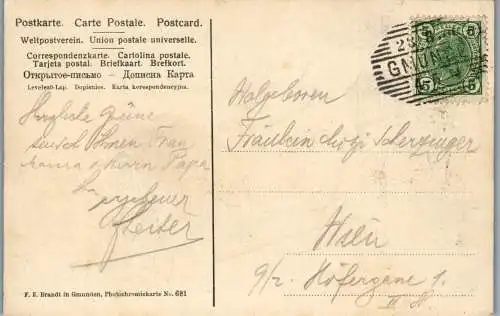 Postkarte. Carte Postale. Postcard.
Weltpostverein. Union postale universelle.
Correspondenzkarte. Cartolina postale.
Tarjeta postal. Briefkaart. Brefkort.
Открытое-письмо — Дописна Карта
Levelezö-Lap. Dopisnice. Karta korespondencyjna.
Herzliche Grüße
Ihnen Frau
Mama u Herrn Papa
Leiter
F. E. Brandt in Gmunden, Photochromiekarte No. 681
GMUNDEN
5 5
5 5
Wolgeboren
Fräulein Luzi Scherzinger
Wien
9/2. Höfergasse 1